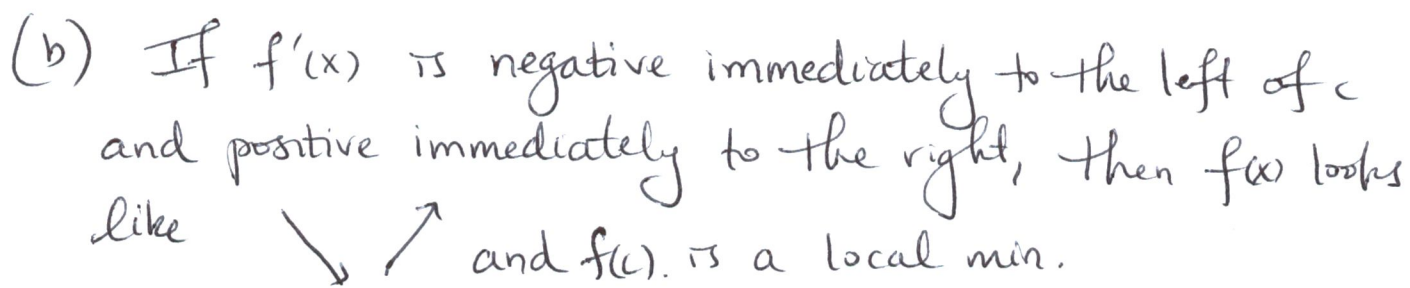 (b) If f'(x) is negative immediately to the left of c
and positive immediately to the right, then f(x) looks
like ↘ ↗ and f(c). is a local min.